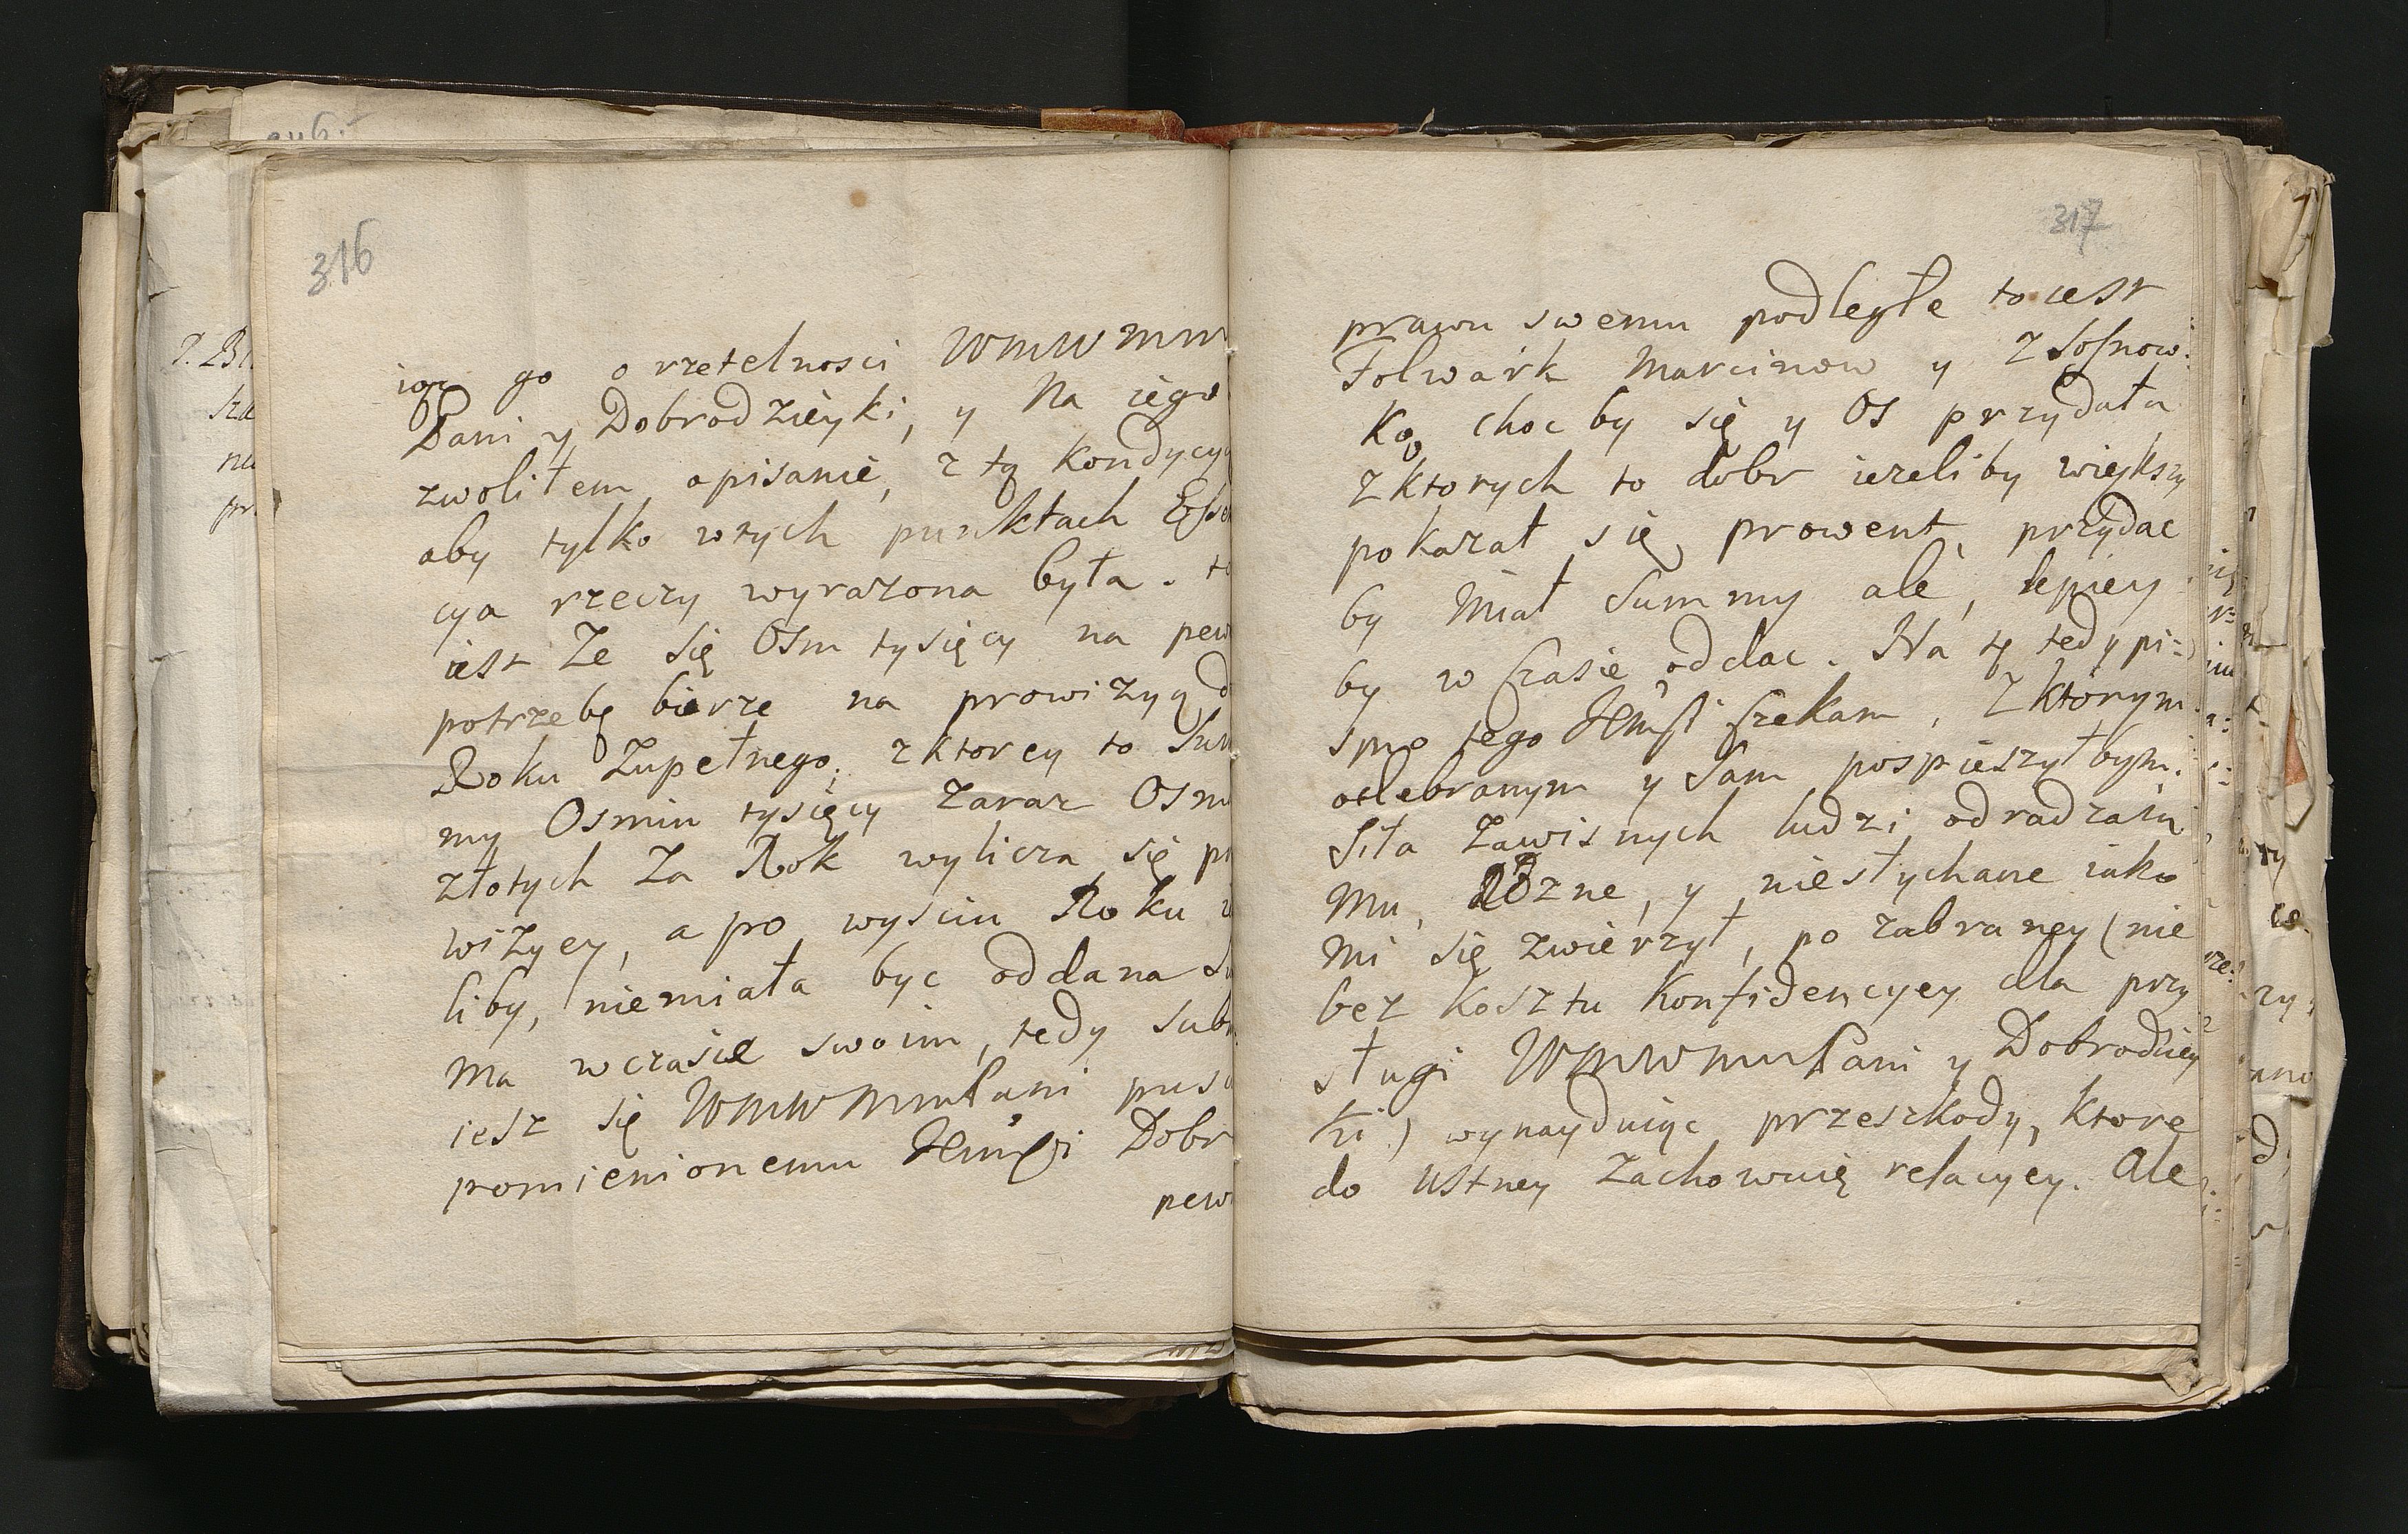 316
iąc go o rzetelnosci WMWMM
Pani y Dobrodzieyki, y Na iego
zwoliłem opisanie, z tą kondycyą
aby tylko wtych punktach Essen
cya rzeczy wyrazona była. to
iest Ze się Osm tysięcy na pew
potrzebę bierze na prowizyą d
Roku Zupełnego, z ktorey to Sum
my Osmiu tysięcy zaraz Osm
złotych Za Rok wylicza się pr
wizyey, a po wysciu Roku
liby, niemiała byc oddana Su
Ma wczasie swoim, tedy sub
iesz się WMWMMPani pusc
pomienionemu Dobr
pew
317
prawu swemu podległe to iest
Folwark Marcinow y z Sosnow:
Ką, choc by się y Os przydała
z ktorych to dobr iezeliby większy
pokazał się prowent, przydac
by Miał Summy ale, lepiey
by w czasie oddac. Na tę tedy pi=
smo tego czekam, z ktorym
odebranym y Sam pospieszył bym.
Siła Zawisnych ludzi odradzaią
Mu, rozne, y niesłychane iako
Mi się zwierzył, po zabraney (nie
bez Kosztu Konfidencyey dla przy
sługi WMWMMPani y Dobrodziey
ki) wynayduiąc przeszkody, ktore
do Ustney Zachowuię relacyey. Ale